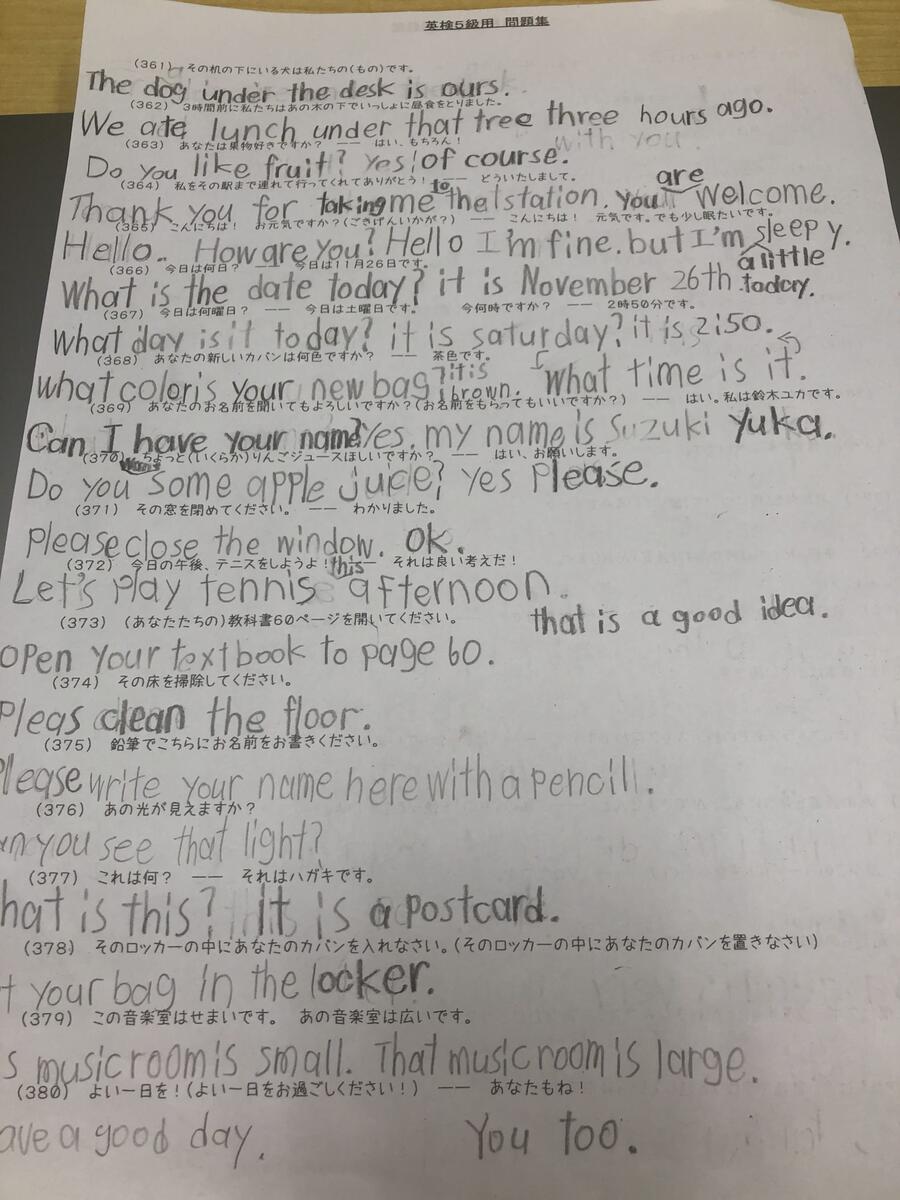 英検5級用 問題集
(361) その机の下にいる犬は私たちの(もの)です。
The dog under the desk is ours.
(362) 3時間前に私たちはあの木の下でいっしょに昼食をとりました。
We ate lunch under that tree three hours ago.
with you.
(363) あなたは果物好きですか? ―― はい、もちろん!
Do you like fruit? Yes! of course.
(364) 私をその駅まで連れて行ってくれてありがとう! ―― どういたしまして。
Thank you for taking me to the station. you are welcome.
(365) こんにちは! お元気ですか?(ごきげんいかが?) ―― こんにちは! 元気です。でも少し眠たいです。
Hello.. How are you? Hello I'm fine. but I'm a little sleepy.
(366) 今日は何日? ―― 今日は11月26日です。
What is the date today? it is November 26th today.
(367) 今日は何曜日? ―― 今日は土曜日です。 今何時ですか? ―― 2時50分です。
What day is it today? it is saturday? it is 2:50.
What time is it.
(368) あなたの新しいカバンは何色ですか? ―― 茶色です。
what color is your new bag? it is brown.
(369) あなたのお名前を聞いてもよろしいですか?(お名前をもらってもいいですか?) ―― はい。私は鈴木ユカです。
Can I have your name? Yes. my name is Suzuki Yuka.
(370) ちょっと(いくらか)りんごジュースほしいですか? ―― はい、お願いします。
Do you want some apple juice? yes please.
(371) その窓を閉めてください。 ―― わかりました。
please close the window. Ok.
(372) 今日の午後、テニスをしようよ! ―― それは良い考えだ!
Let's play tennis this afternoon.
that is a good idea.
(373) (あなたたちの)教科書60ページを開いてください。
open your textbook to page 60.
(374) その床を掃除してください。
Pleas clean the floor.
(375) 鉛筆でこちらにお名前をお書きください。
Please write your name here with a pencill.
(376) あの光が見えますか?
an you see that light?
(377) これは何? ―― それはハガキです。
hat is this? it is a postcard.
(378) そのロッカーの中にあなたのカバンを入れなさい。(そのロッカーの中にあなたのカバンを置きなさい)
t your bag in the locker.
(379) この音楽室はせまいです。 あの音楽室は広いです。
s music room is small. That music room is large.
(380) よい一日を!(よい一日をお過ごしください!) ―― あなたもね!
ave a good day. You too.